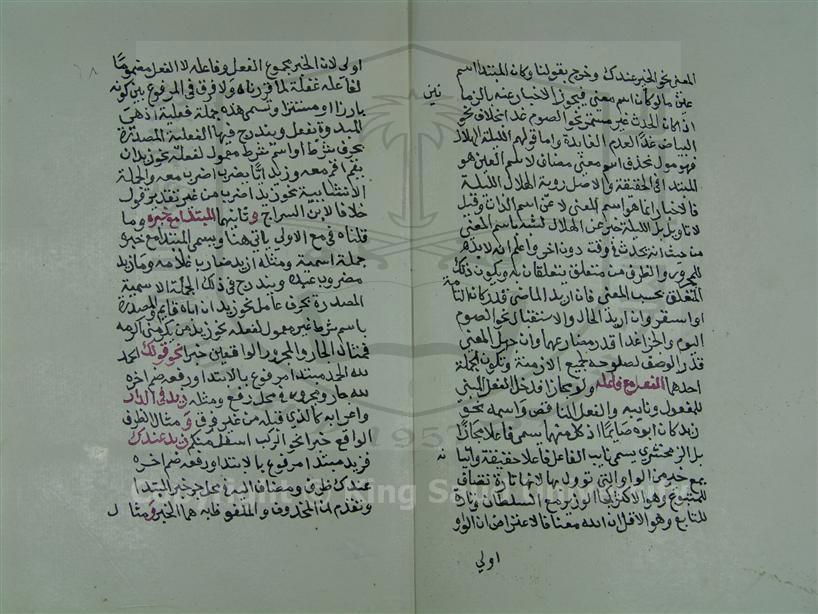 المعنى نحو الخبر عندك وخرج بقولنا وكان المبتدا اسم
عين ما لو كان اسم معنى فيجوز الاخبار عنه بالزما
نين
اذا كان الحدث غير مستمر نحو الصوم غدا بخلاف نحو
البياض غدا لعدم الفايدة واما قولهم الليلة الهلال
فهو مول بحذف اسم معنى مضاف لاسم العين هو
المبتدا في الحقيقة والاصل روية الهلال الليلة
فالاخبار انما هو اسم المعنى لا عن اسم الذات وقيل
لا تاويل بل الليلة خبر عن الهلال لشبهه باسم المعنى
من حيث انه يحدث في وقت دون اخر واعلم انه لابد
للمجرور والظرف من متعلق يتعلقان به ويكون ذلك
المتعلق بحسب المعنى فان اريد الماضي قدر كان التامة
او استقر وان اريد الحال والاستقبال نحو الصوم
اليوم والجزا غدا قدر مضارعهما وان جهل المعنى
قدر الوصف لصلوحه لجميع الازمنة وتكون الجملة
احدها الفعل مع فاعله ولو مجازا فدخل الفعل المبني
للمفعول ونايبه والفعل الناقص واسمه نحو
زيد كان ابوه صايما اذ كل منهما يسمى فاعلا مجازا
بل الزمخشري يسمي نايب الفاعل فاعلا حقيقة واتيا
نه
بمع خير من الواو التي
للمتبوع وهو الاكثر كجا الوزير مع السلطان وتارة
للتابع وهو الاقل ان الله معنا فالاعتراض ان الواو
اولي
اولى لان الخبر مجموع الفعل وفاعله لا الفعل مضموما
لفاعله غفلة لما قررناه ولا فرق في المرفوع بين كونه
بارزا او مستترا وتسمى هذه جملة فعلية اذ هي
المبدوة بفعل ويندرج فيها الفعلية المصدرة
بحرف شرط او اسم شرط معمول لفعله نحو زيد ان
يقم اقم معه وزيد ايا يضرب اضرب معه والجملة
الانشايية نحو زيد اضربه من غير تقدير قول
خلافا لابن السراج وثانيهما المبتدا مع خبره وما
قلناه في مع الاولى ياتي هنا ويسمى المبتدا مع خبره
جملة اسمية ومثله ازيد ضارب غلامه وما زيد
مضروب عبده ويندرج في ذلك الجملة الاسمية
المصدرة بحرف عامل نحو زيد ان اباه قايم والمصدرة
باسم شرط غير معمول لفعله نحو زيد من يكرمني اكرمه
فمثال الجار والمجرور الواقعين خبرا نحو قولك الحمد
لله الحمد مبتدا مرفوع بالابتدا ورفعه ضم اخره
لله جار ومجرور في محل رفع ومثله زيد في الدار
واعرابه كالذي قبله من غير فرق ومثال الظرف
الواقع خبرا نحو الركب اسفل منكم زيد عندك
فزيد مبتدا مرفوع بالابتدا ورفعه ضم اخره
عندك ظرف ومضاف اليه في محل رفع خبر المبتدا
وتقدم ان المحذوف والملفوظ به هما الخبر ومثال